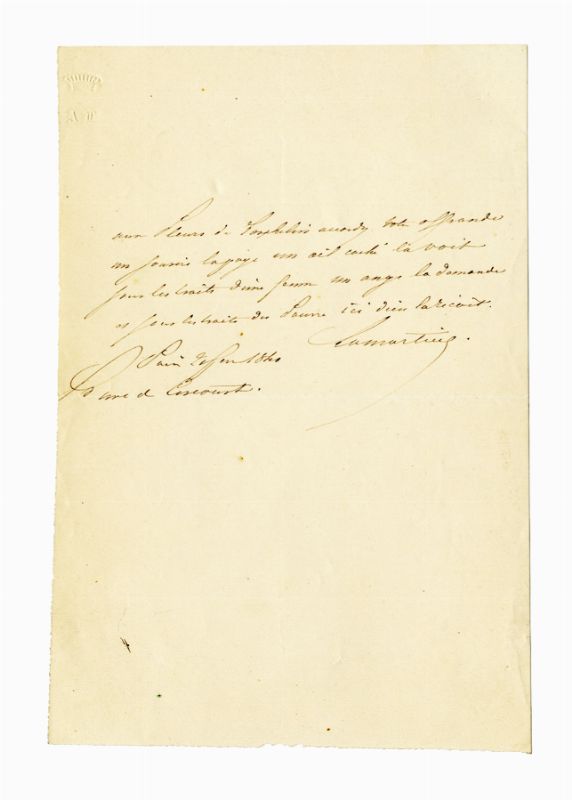 aux Pleurs de l'orphelin accordez votre offrande
un sourire la paye un œil caché la voit
sous les traits d'une femme un ange la demande
et sous les traits des Pauvre ici dieu la reçoit.
Lamartine.
Paris 1840
de Circourt.